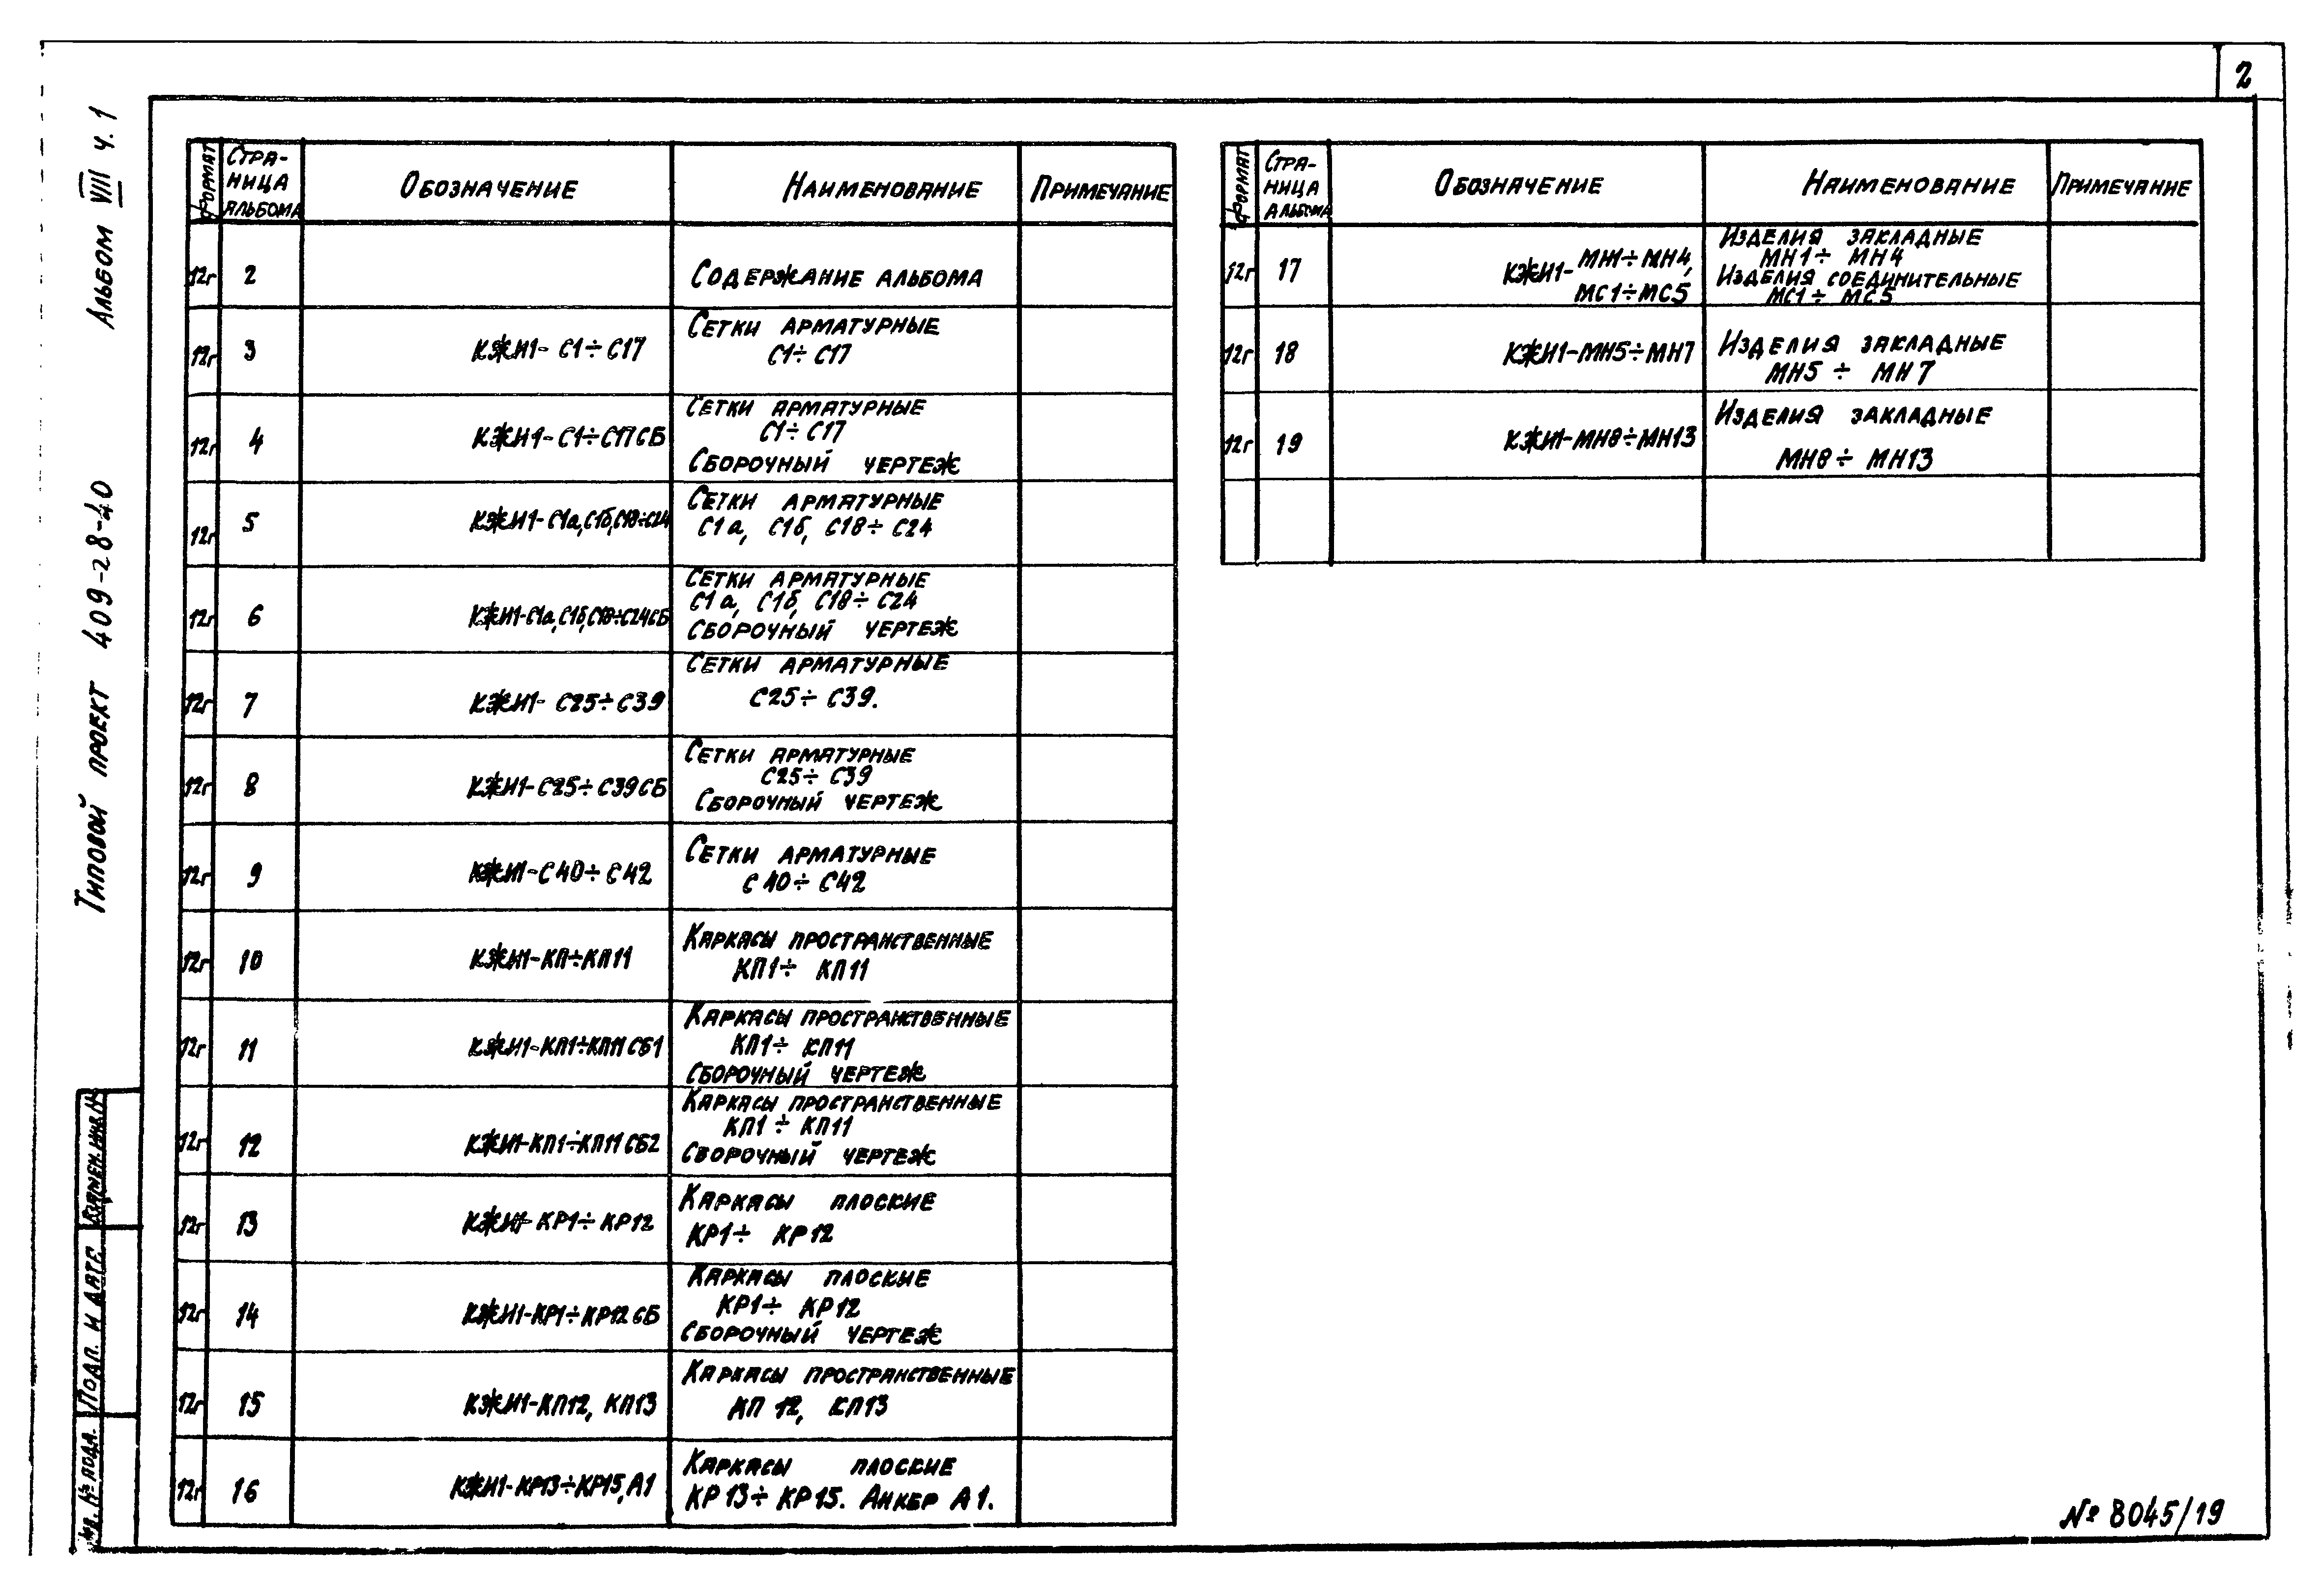 2
Альбом VIII ч. 1
Типовой проект 409-28-40
Формат
Стра-
ница
альбома
Обозначение
Наименование
Примечание
12г
2
Содержание альбома
12г
3
КЖИ1- С1÷С17
Сетки арматурные
С1÷ С17
12г
4
КЖИ1- С1÷С17СБ
Сетки арматурные
С1÷ С17
Сборочный чертеж
12г
5
КЖИ1- С1а,С1б,С18÷С24
Сетки арматурные
С1а, С1б, С18÷ С24
12г
6
КЖИ1-С1а,С1б,С18÷С24СБ
Сетки арматурные
С1а, С1б, С18÷ С24
Сборочный чертеж
12г
7
КЖИ1- С25÷С39
Сетки арматурные
С25÷ С39.
12г
8
КЖИ1-С25÷ С39СБ
Сетки арматурные
С25÷ С39
Сборочный чертеж
12г
9
КЖИ1-С40÷С42
Сетки арматурные
С40÷ С42
12г
10
КЖИ1-КП÷КП11
Каркасы пространственные
КП1÷ КП11
12г
11
КЖИ1-КП1÷КП11СБ1
Каркасы пространственные
КП1÷ КП11
Сборочный чертеж
12г
12
КЖИ1-КП1÷КП11СБ2
Каркасы пространственные
КП1÷ КП11
Сборочный чертеж
12г
13
КЖИ1- КР1÷ КР12
Каркасы плоские
КР1÷ КР12
12г
14
КЖИ1-КР1÷КР12СБ
Каркасы плоские
КР1÷ КР12
Сборочный чертеж
12г
15
КЖИ1-КП12, КП13
Каркасы пространственные
КП 12, КП13
12г
16
КЖИ1-КР13÷КР15,А1
Каркасы плоские
КР13÷ КР15. Анкер А1.
Формат
Стра-
ница
альбома
Обозначение
Наименование
Примечание
12г
17
КЖИ1- МН1÷МН4,
МС1÷МС5
Изделия закладные
МН1÷ МН4
Изделия соединительные
МС1÷ МС5
12г
18
КЖИ1-МН5÷МН7
Изделия закладные
МН5 ÷ МН7
12г
19
КЖИ1-МН8÷МН13
Изделия закладные
МН8÷ МН13
Подп. и дате
№ подл.
№ 8045/19